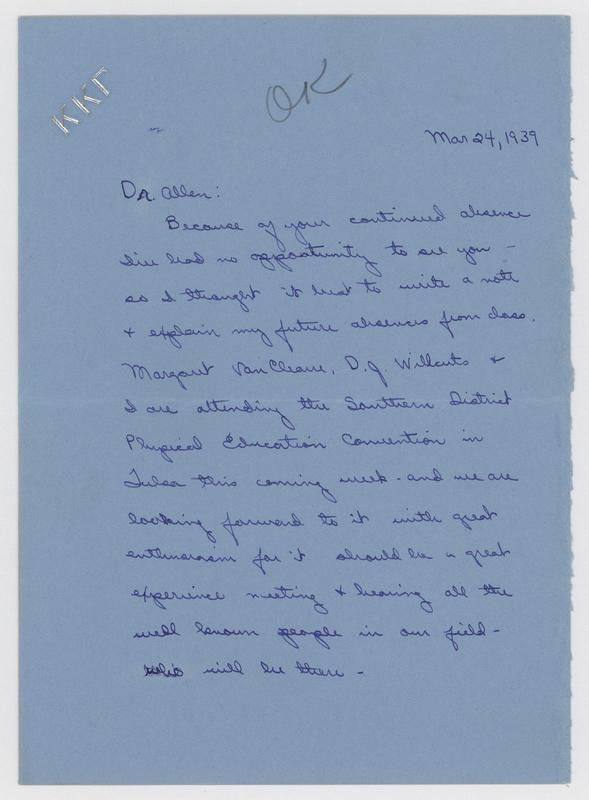 KKΓ
OK
Mar 24, 1939
Dr. Allen:
Because of your continued absence
I've had no opportunity to see you -
so I thought it best to write a note
+ explain my future absences from class.
Margaret Van Cleave, D.J. Willcuts +
I are attending the Southern District
Physical Education Convention in
Tulsa this coming week - and we are
looking forward to it with great
enthusiasm for it should be a great
experience meeting + hearing all the
well known people in our field -
who will be there -